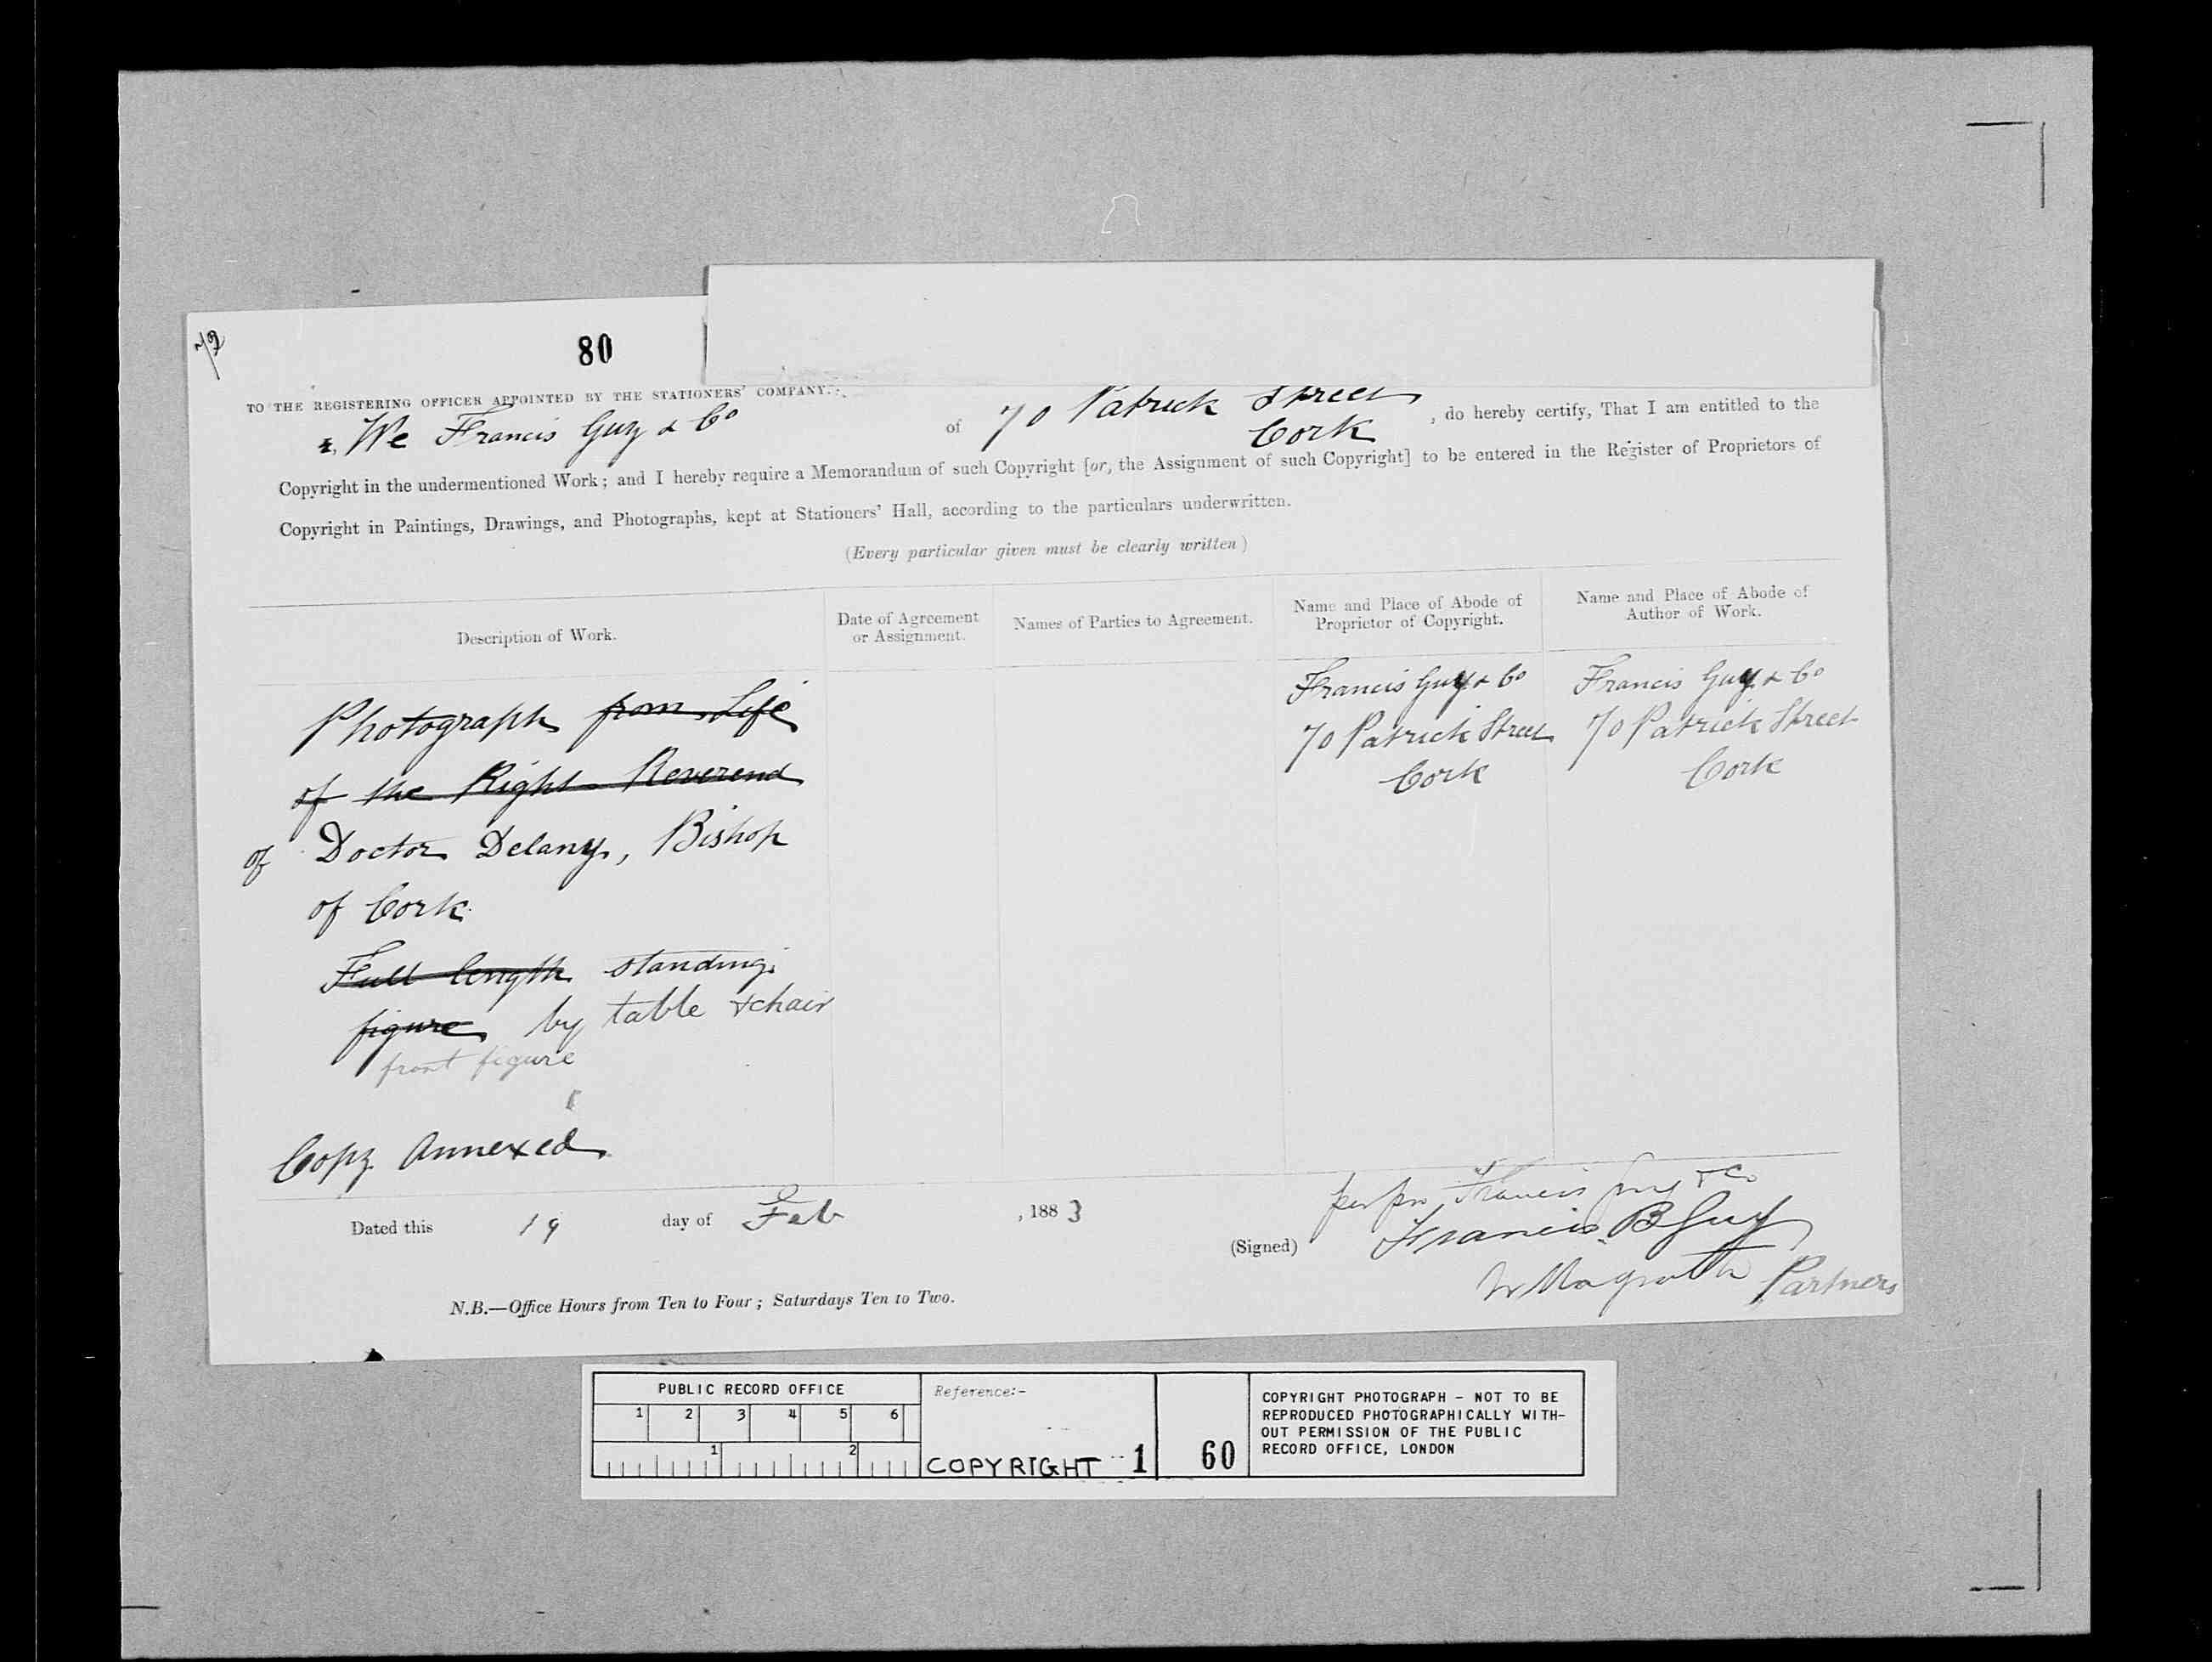 80
TO THE REGISTERING OFFICER APPOINTED BY THE STATIONERS' COMPANY.
I, We Francis Guy & Co of 70 Patrick Street Cork, do hereby certify, That I am entitled to the
Copyright in the undermentioned Work; and I hereby require a Memorandum of such Copyright [or, the Assignment of such Copyright] to be entered in the Register of Proprietors of
Copyright in Paintings, Drawings, and Photographs, kept at Stationers' Hall, according to the particulars underwritten.
(Every particular given must be clearly written)
Description of Work.
Date of Agreement
or Assignment.
Names of Parties to Agreement.
Name and Place of Abode of
Proprietor of Copyright.
Name and Place of Abode of
Author of Work.
Photograph from Life
of the Right Reverend
of Doctor Delany, Bishop
of Cork.
Full length standing
figure by table & chair
front figure
Copy Annexed
Francis Guy & Co
70 Patrick Street
Cork
Francis Guy & Co
70 Patrick Street
Cork
Dated this 19 day of Feb, 1883
(Signed)
per pro Francis Guy & Co
Francis B Guy
W Magrath Partners
N.B.—Office Hours from Ten to Four; Saturdays Ten to Two.
PUBLIC RECORD OFFICE
1 2 3 4 5 6
1 2
Reference:-
COPYRIGHT 1 60
COPYRIGHT PHOTOGRAPH - NOT TO BE
REPRODUCED PHOTOGRAPHICALLY WITH-
OUT PERMISSION OF THE PUBLIC
RECORD OFFICE, LONDON